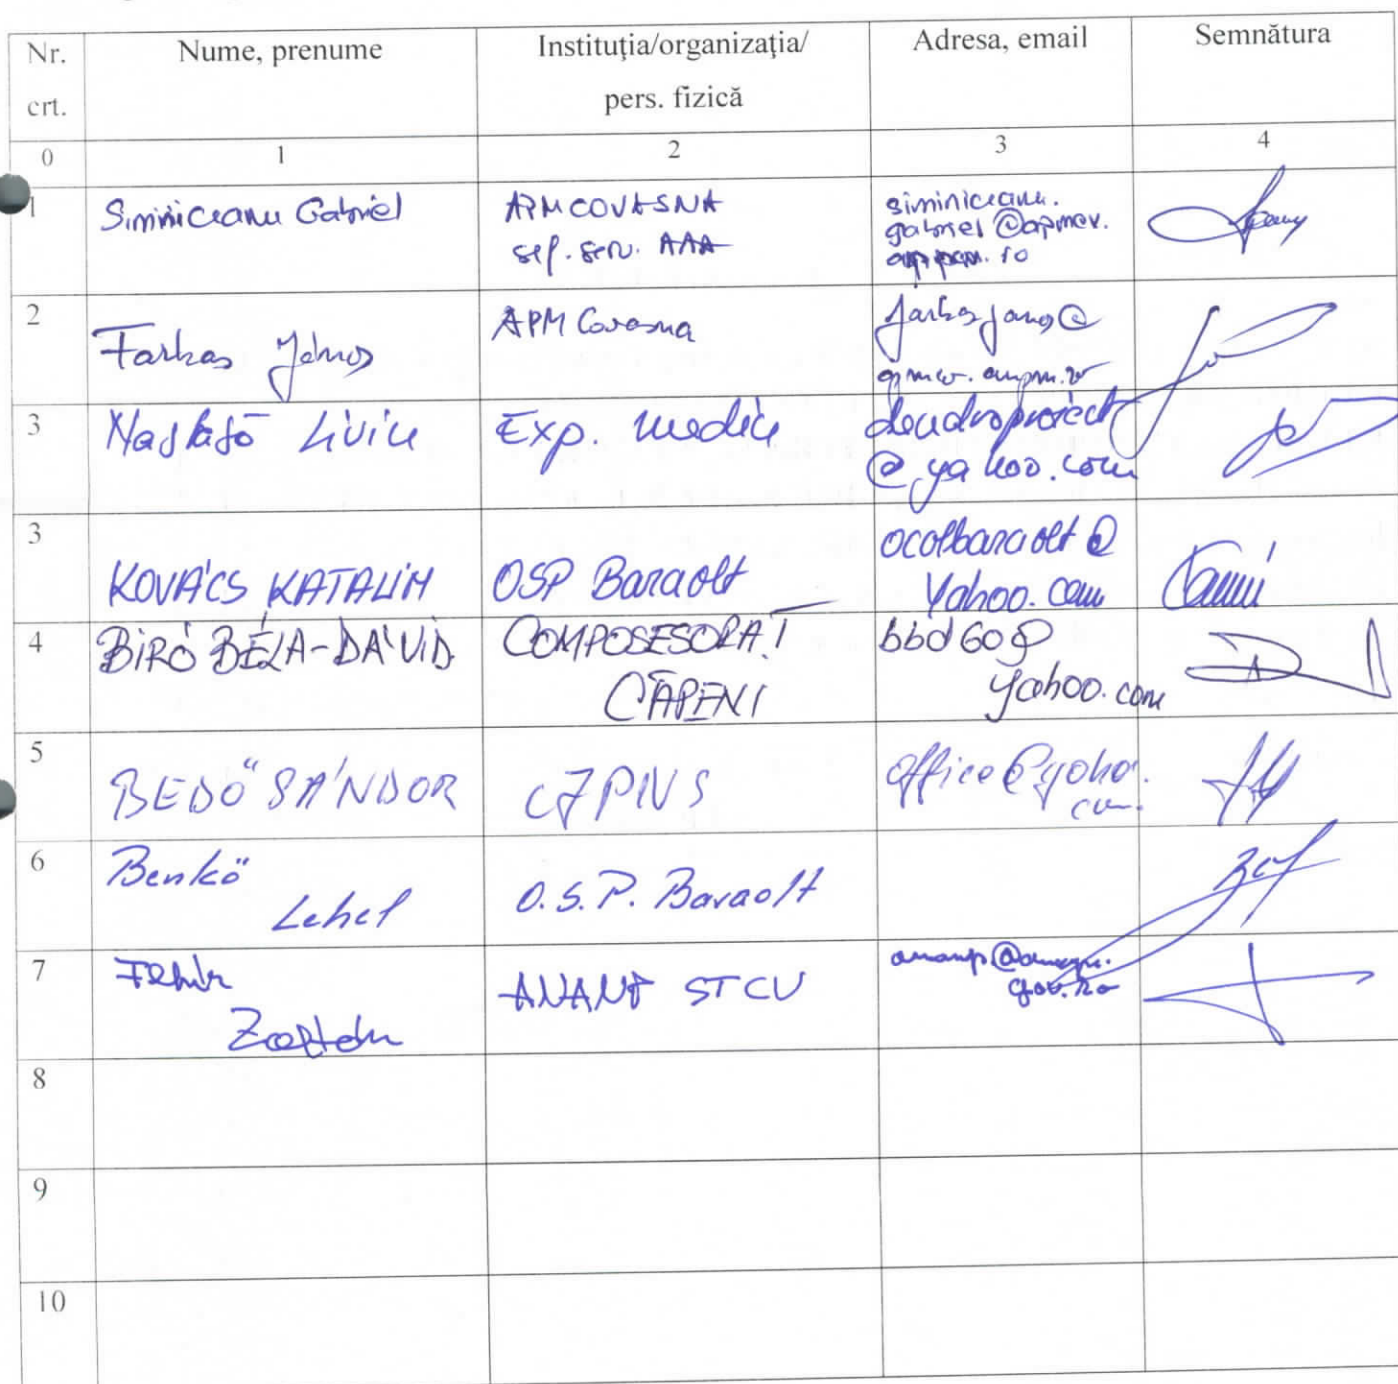 Nr. crt. Nume, prenume Instituţia/organizaţia/ pers. fizică Adresa, email Semnătura
0 1 2 3 4
1 Siminiceanu Gabriel APM COVASNA siminiceanu.
sef. serv. AAA gabriel @apmcv.
anpm. ro
2 Farkas János APM Covasna farkasjanos@
apmcv. anpm.ro
3 Liviu Exp. medic dendroproiect
@yahoo.com
3 KOVÁCS KATALIN OSP Baraolt ocolbaraolt@
Yahoo.com
4 BIRÓ BÉLA-DÁVID COMPOSESORAT bbd60@
CĂPENI yahoo.com
5 BEDŐ SÁNDOR office@yaho.
com.
6 Benkő
Lehel O.S.P. Baraolt
7 ANANP STCV
gov.ro
8
9
10